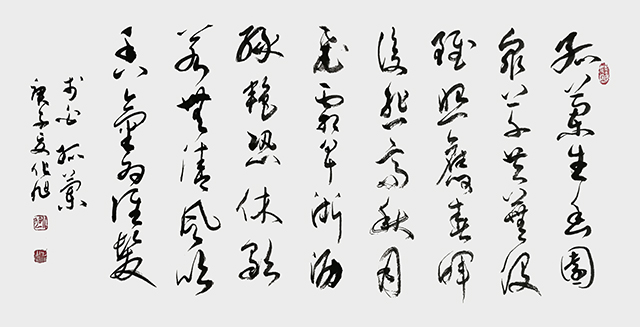 孤蘭生幽園
眾草共蕪沒
雖照春暉
復悲高秋月
飛霜早淅瀝
綠艷恐休歇
若無清風吹
香氣為誰發
李白孤蘭
庚子夏